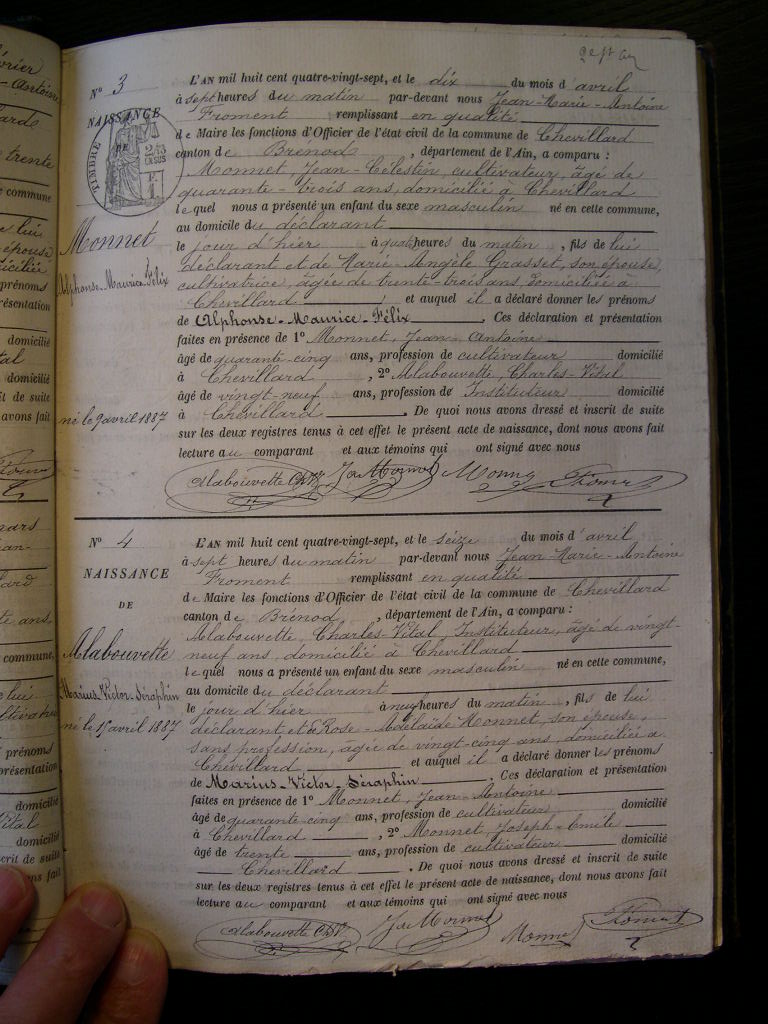 N° 3
NAISSANCE
DE
TIMBRE
Monnet
Alphonse-Maurice-Félix
né le 9 avril 1887
L'AN mil huit cent quatre-vingt-sept, et le dix du mois d'avril
à sept heures du matin par-devant nous Jean-Marie-Antoine
Froment remplissant en qualité
de Maire les fonctions d'Officier de l'état civil de la commune de Chevillard
canton de Brenod, département de l'Ain, a comparu :
Monnet, Jean-Célestin, cultivateur, âgé de
quarante-trois ans, domicilié à Chevillard
lequel nous a présenté un enfant du sexe masculin né en cette commune,
au domicile du déclarant
le jour d'hier à quat heures du matin, fils de lui
déclarant et de Marie-Angèle Grasset, son épouse,
cultivatrice, âgée de trente-trois ans, domiciliée à
Chevillard et auquel il a déclaré donner les prénoms
de Alphonse-Maurice-Félix. Ces déclaration et présentation
faites en présence de 1° Monnet, Jean-Antoine
âgé de quarante-cinq ans, profession de cultivateur domicilié
à Chevillard, 2° Alabouvette, Charles-Vital
âgé de vingt-neuf ans, profession de Instituteur domicilié
à Chevillard. De quoi nous avons dressé et inscrit de suite
sur les deux registres tenus à cet effet le présent acte de naissance, dont nous avons fait
lecture au comparant et aux témoins qui ont signé avec nous
Alabouvette Ch. V. Monnet Froment
N° 4
NAISSANCE
DE
Alabouvette
Marius-Victor-Séraphin
né le 15 avril 1887
L'AN mil huit cent quatre-vingt-sept, et le seize du mois d'avril
à sept heures du matin par-devant nous Jean-Marie-Antoine
Froment remplissant en qualité
de Maire les fonctions d'Officier de l'état civil de la commune de Chevillard
canton de Brénod, département de l'Ain, a comparu :
Alabouvette, Charles-Vital Instituteur, âgé de vingt-
neuf ans, domicilié à Chevillard
lequel nous a présenté un enfant du sexe masculin né en cette commune,
au domicile du déclarant
le jour d'hier à neuf heures du matin, fils de lui
déclarant et de Rose-Adélaïde Monnet, son épouse,
sans profession, âgée de vingt-cinq ans, domiciliée à
Chevillard et auquel il a déclaré donner les prénoms
de Marius-Victor-Séraphin. Ces déclaration et présentation
faites en présence de 1° Monnet, Jean-Antoine
âgé de quarante-cinq ans, profession de cultivateur domicilié
à Chevillard, 2° Monnet, Joseph-Emile
âgé de trente ans, profession de cultivateur domicilié
Chevillard. De quoi nous avons dressé et inscrit de suite
sur les deux registres tenus à cet effet le présent acte de naissance, dont nous avons fait
lecture au comparant et aux témoins qui ont signé avec nous
Alabouvette Ch. V. Monnet Froment